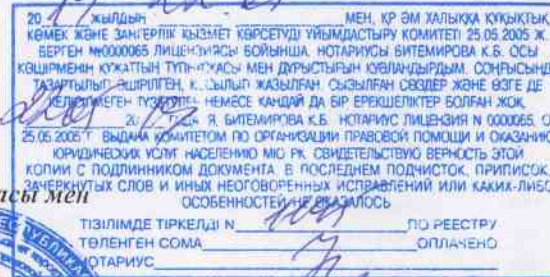 20 жылдың МЕН, ҚР ӘМ ХАЛЫҚҚА ҚҰҚЫҚТЫҚ
КӨМЕК ЖӘНЕ ЗАҢГЕРЛІК ҚЫЗМЕТ КӨРСЕТУДІ ҰЙЫМДАСТЫРУ КОМИТЕТІ 25.05.2005 Ж.
БЕРГЕН №0000065 ЛИЦЕНЗИЯСЫ БОЙЫНША, НОТАРИУСЫ БИТЕМИРОВА К.Б. ОСЫ
КӨШІРМЕНІҢ ҚҰЖАТТЫҢ ТҮПНҰСҚАСЫ МЕН ДҰРЫСТЫҒЫН КУӘЛАНДЫРДЫМ. СОҢҒЫСЫНДА
ТАЗАРТЫЛЫП ӨШІРІЛГЕН, ҚОСЫЛЫП ЖАЗЫЛҒАН, СЫЗЫЛҒАН СӨЗДЕР ЖӘНЕ ӨЗГЕ ДЕ
КЕЛІСІЛМЕГЕН ТҮЗЕТУЛЕР НЕМЕСЕ ҚАНДАЙ ДА БІР ЕРЕКШЕЛІКТЕР БОЛҒАН ЖОҚ.
Я, БИТЕМИРОВА К.Б. НОТАРИУС ЛИЦЕНЗИЯ N 0000065, О
25.05.2005 Г. ВЫДАНА КОМИТЕТОМ ПО ОРГАНИЗАЦИИ ПРАВОВОЙ ПОМОЩИ И ОКАЗАНИЮ
ЮРИДИЧЕСКИХ УСЛУГ НАСЕЛЕНИЮ МЮ РК. СВИДЕТЕЛЬСТВУЮ ВЕРНОСТЬ ЭТОЙ
КОПИИ С ПОДЛИННИКОМ ДОКУМЕНТА. В ПОСЛЕДНЕМ ПОДЧИСТОК, ПРИПИСОК,
ЗАЧЕРКНУТЫХ СЛОВ И ИНЫХ НЕОГОВОРЕННЫХ ИСПРАВЛЕНИЙ ИЛИ КАКИХ-ЛИБО
ОСОБЕННОСТЕЙ НЕ ОКАЗАЛОСЬ
асы мен
ТІЗІЛІМДЕ ТІРКЕЛДІ N ПО РЕЕСТРУ
ТӨЛЕНГЕН СОМА ОПЛАЧЕНО
НОТАРИУС